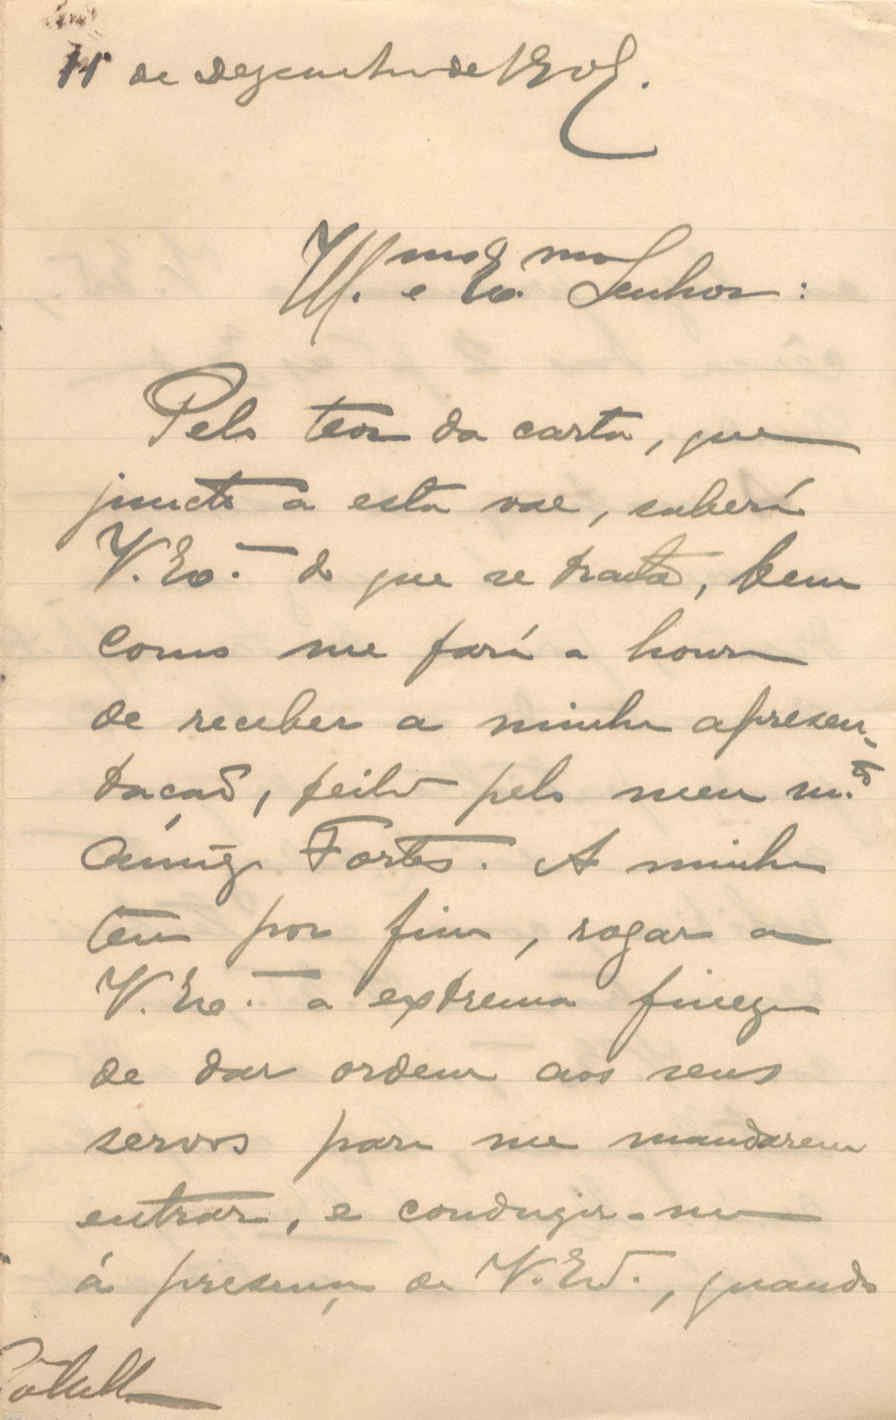 11 de Dezembro de 190
Ill.mo e Ex.mo Senhor:
Pelo teor da carta, que
juncto a esta vae, saberá
V. Ex.ª do que se tracta, bem
como me fará a honra
de receber a minha apresen-
tação, feita pelo meu m.to
Amigo Fortes. A minha
tem por fim, rogar a
V. Ex.ª a extrema fineza
de dar ordem aos seus
servos para me mandarem
entrar, e conduzir-me
á presença de V. Ex.ª, quando